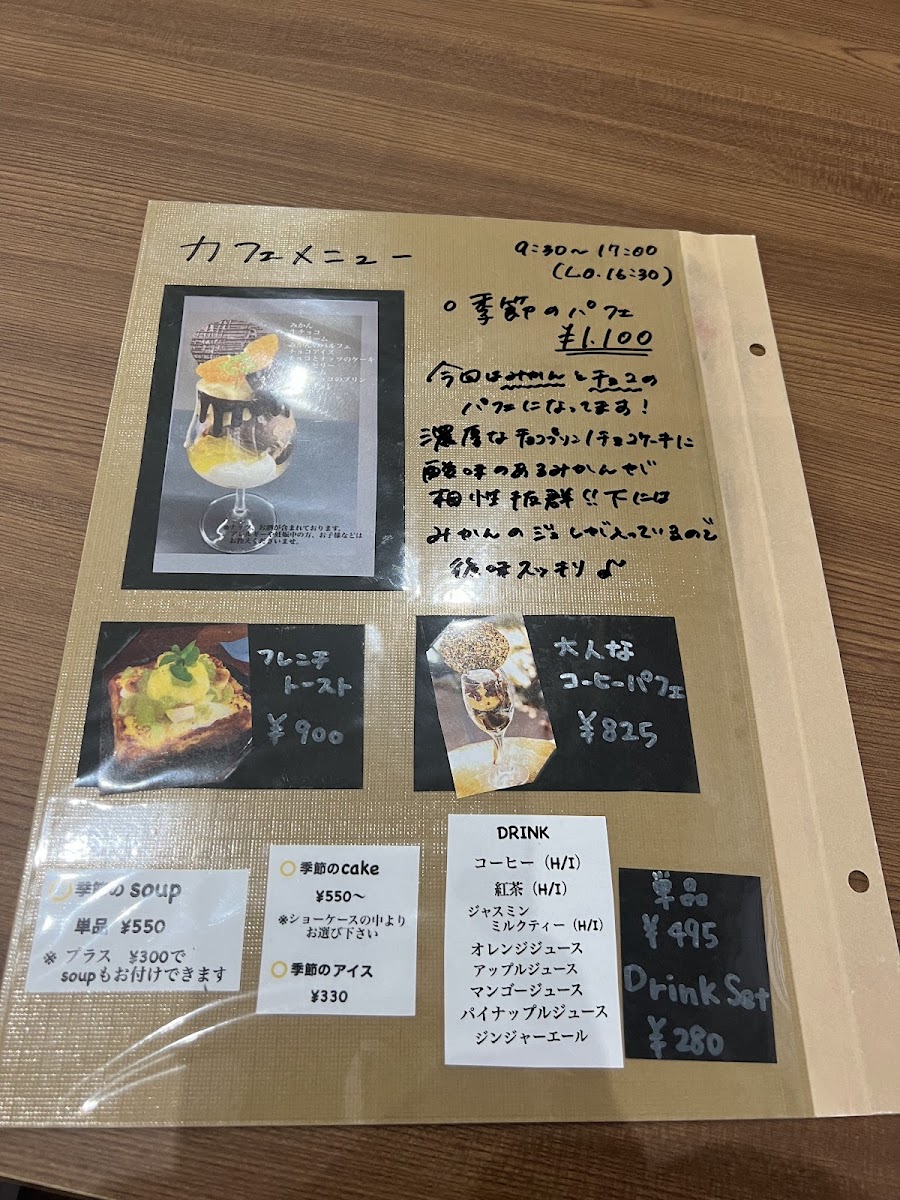 カフェメニュー
9:30~17:00
(L.O.16:30)
○季節のパフェ
¥1.100
今回はみかんとチョコの
パフェになってます!
濃厚なチョコプリン/チョコケーキに
酸味のあるみかんが
相性抜群!!下には
みかんのジュレが入っているので
後味スッキリ♪
みかん
生チョコ
みかんのパルフェ
チョコアイス
チョコとナッツのケーキ
お酒が含まれております。
アレルギーや妊娠中の方、お子様などは
お控えくださいませ。
フレンチ
トースト
¥900
大人な
コーヒーパフェ
¥825
○季節の soup
単品 ¥550
※ プラス ¥300で
soupもお付けできます
○季節のcake
¥550~
※ショーケースの中より
お選び下さい
○季節のアイス
¥330
DRINK
コーヒー(H/I)
紅茶(H/I)
ジャスミン
ミルクティー(H/I)
オレンジジュース
アップルジュース
マンゴージュース
パイナップルジュース
ジンジャーエール
単品
¥495
Drink Set
¥280